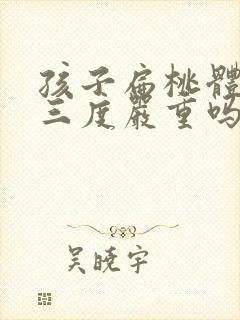 孩子扁桃體
三度嚴重嗎
吴曉宇